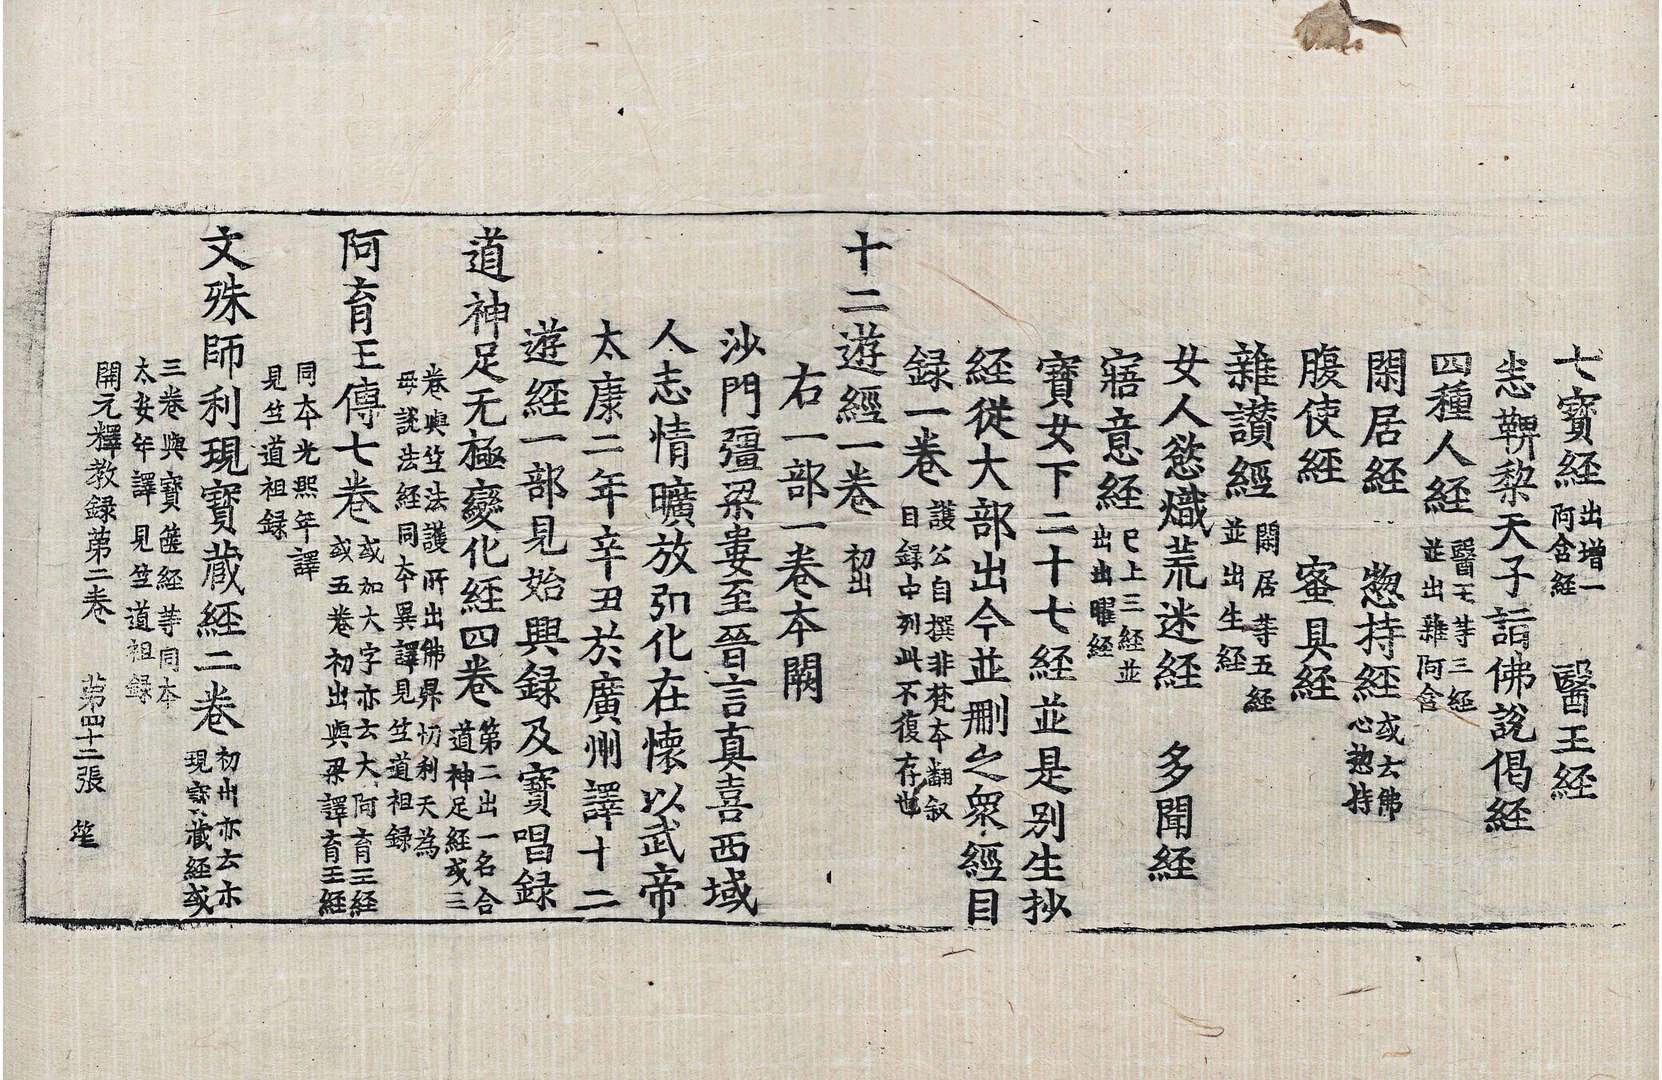 七寳經出增一阿含經 醫王經
恙鞞黎天子詣佛說偈經
四種人經醫王等三經並出雜阿含
閑居經 惣持經或云佛心惣持
腹使經 蜜具經
雜讃經閑居等五經並出生經
女人慾熾荒迷經 多聞經
寤意經已上三經並出出曜經
寳女下二十七經並是别生抄
經從大部出今並刪之衆經目
録一卷護公自撰非梵本翻叙目録中列此不復存也
十二遊經一卷初出
右一部一卷本闕
沙門彊梁婁至晉言真喜西域
人志情曠放弘化在懷以武帝
太康二年辛丑於廣州譯十二
遊經一部見始興録及寳唱録
道神足无極變化經四卷第二出一名合道神足經或三
卷與竺法護所出佛昇忉利天為母説法經同本異譯見竺道祖録
阿育王傳七卷或加大字亦云大阿育王經或五卷初出與梁譯育王經
同本光熙年譯見竺道祖録
文殊師利現寳藏經二卷初出亦云亦現寳藏經或
三卷與寳篋經等同本太安年譯見竺道祖録
開元釋教録第二卷 第四十二張 笙